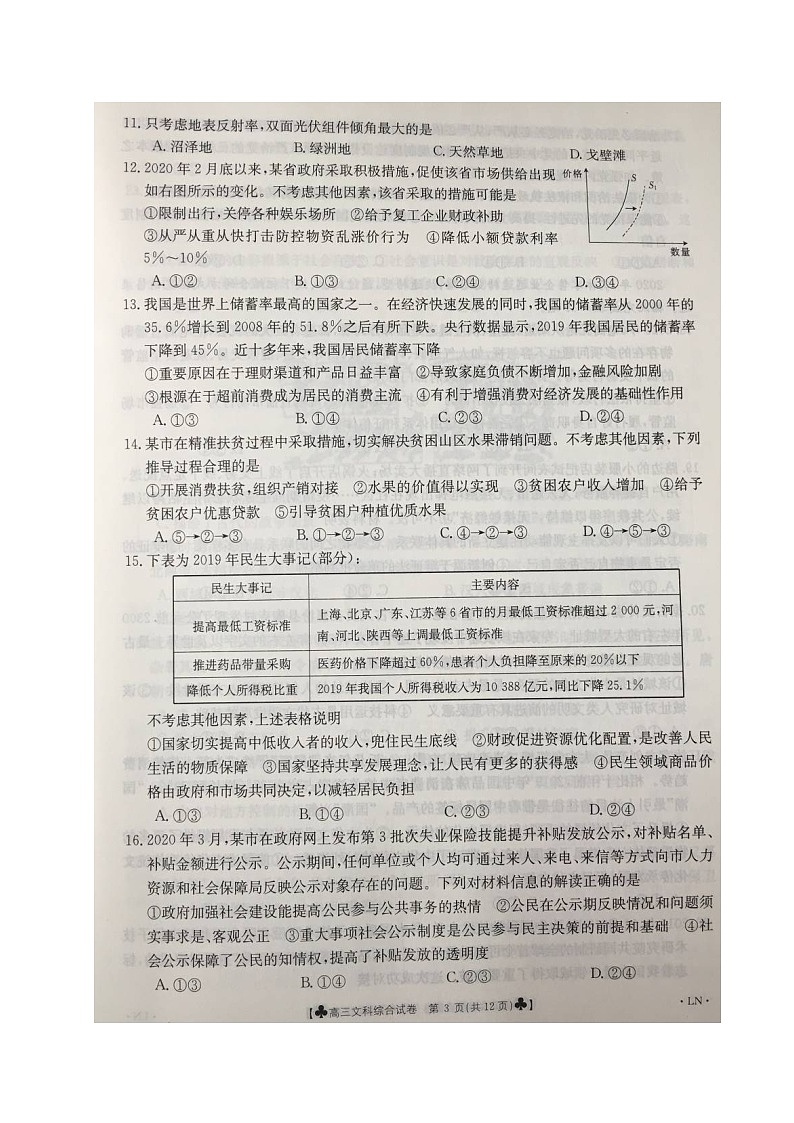 11. 只考虑地表反射率,双面光伏组件倾角最大的是
A. 沼泽地 B. 绿洲地 C. 天然草地 D. 戈壁滩
12. 2020 年 2 月底以来,某省政府采取积极措施,促使该省市场供给出现
如右图所示的变化。不考虑其他因素,该省采取的措施可能是
①限制出行,关停各种娱乐场所 ②给予复工企业财政补助
③从严从重从快打击防控物资乱涨价行为 ④降低小额贷款利率
5%~10%
价格
S
S₁
数量
A. ①② B. ①③ C. ②④ D. ③④
13. 我国是世界上储蓄率最高的国家之一。在经济快速发展的同时,我国的储蓄率从 2000 年的
35.6%增长到 2008 年的 51.8%之后有所下跌。央行数据显示,2019 年我国居民的储蓄率
下降到 45%。近十多年来,我国居民储蓄率下降
①重要原因在于理财渠道和产品日益丰富 ②导致家庭负债不断增加,金融风险加剧
③根源在于超前消费成为居民的消费主流 ④有利于增强消费对经济发展的基础性作用
A. ①③ B. ①④ C. ②③ D. ②④
14. 某市在精准扶贫过程中采取措施,切实解决贫困山区水果滞销问题。不考虑其他因素,下列
推导过程合理的是
①开展消费扶贫,组织产销对接 ②水果的价值得以实现 ③贫困农户收入增加 ④给予
贫困农户优惠贷款 ⑤引导贫困户种植优质水果
A. ⑤→②→③ B. ①→②→③ C. ④→②→③ D. ④→⑤→③
15. 下表为 2019 年民生大事记(部分):
民生大事记 主要内容
提高最低工资标准 上海、北京、广东、江苏等 6 省市的月最低工资标准超过 2 000 元,河
南、河北、陕西等上调最低工资标准
推进药品带量采购 医药价格下降超过 60%,患者个人负担降至原来的 20%以下
降低个人所得税比重 2019 年我国个人所得税收入为 10 388 亿元,同比下降 25.1%
不考虑其他因素,上述表格说明
①国家切实提高中低收入者的收入,兜住民生底线 ②财政促进资源优化配置,是改善人民
生活的物质保障 ③国家坚持共享发展理念,让人民有更多的获得感 ④民生领域商品价
格由政府和市场共同决定,以减轻居民负担
A. ①③ B. ①④ C. ②③ D. ②④
16. 2020 年 3 月,某市在政府网上发布第 3 批次失业保险技能提升补贴发放公示,对补贴名单、
补贴金额进行公示。公示期间,任何单位或个人均可通过来人、来电、来信等方式向市人力
资源和社会保障局反映公示对象存在的问题。下列对材料信息的解读正确的是
①政府加强社会建设能提高公民参与公共事务的热情 ②公民在公示期反映情况和问题须
实事求是、客观公正 ③重大事项社会公示制度是公民参与民主决策的前提和基础 ④社
会公示保障了公民的知情权,提高了补贴发放的透明度
A. ①③ B. ①④ C. ②③ D. ②④
【♣高三文科综合试卷 第 3 页(共 12 页)♣】 ·LN·